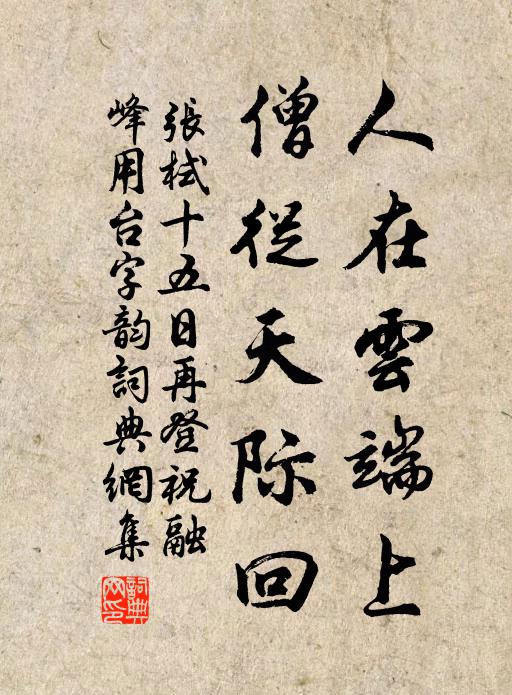 人在雲端上
僧從天际回
張栻十五日再登祝融
峰用台字韵詞典網集
詞典網印